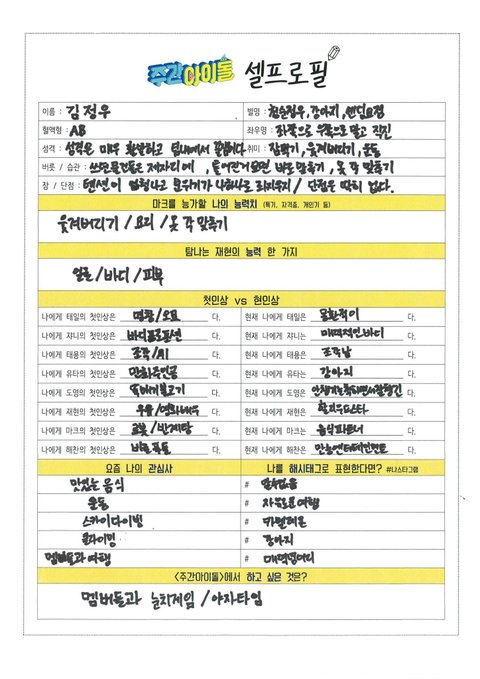 주간아이돌 셀프로필
이름 : 김정우
별명 : 천승정우, 강아지, 엔딩요정
혈액형 : AB
좌우명 : 좌쪽으로 우쪽으로 말고 직진
성격 : 성격은 매우 활발하고 팀내에서
취미 : 잠먹기, 웃겨버리기, 운동
버릇 / 습관 : 쓰던물건들은 제자리에, 바로 맞추기, 옷 각 맞추기
장 / 단점 : 텐션이 분위기가 / 단점은 딱히 없다.
마크를 능가할 나의 능력치 (특기, 자격증, 개인기 등)
웃겨버리기 / 요리 / 옷 각 맞추기
탐나는 재현의 능력 한 가지
얼굴 / 바디 / 피부
첫인상 vs 현인상
나에게 태일의 첫인상은 명창 / 오묘 다.
현재 나에게 태일은 다.
나에게 쟈니의 첫인상은 바디프로포션 다.
현재 나에게 쟈니는 매력적인바디 다.
나에게 태용의 첫인상은 조각 / AI 다.
현재 나에게 태용은 조각남 다.
나에게 유타의 첫인상은 만화주인공 다.
현재 나에게 유타는 강아지 다.
나에게 도영의 첫인상은 뚝배기불고기 다.
현재 나에게 도영은 다.
나에게 재현의 첫인상은 우유 / 영화배우 다.
현재 나에게 재현은 할리우드스타 다.
나에게 마크의 첫인상은 로봇 / 반계탕 다.
현재 나에게 마크는 음식파트너 다.
나에게 해찬의 첫인상은 다.
현재 나에게 해찬은 만능엔터테인먼트 다.
요즘 나의 관심사
나를 해시태그로 표현한다면? #나스타그램
맛있는 음식
#
운동
# 자유로운여행
스카이다이빙
# 카멜레온
# 강아지
멤버들과 여행
# 매력덩어리
<주간아이돌>에서 하고 싶은 것은?
멤버들과 눈치게임 / 야자타임